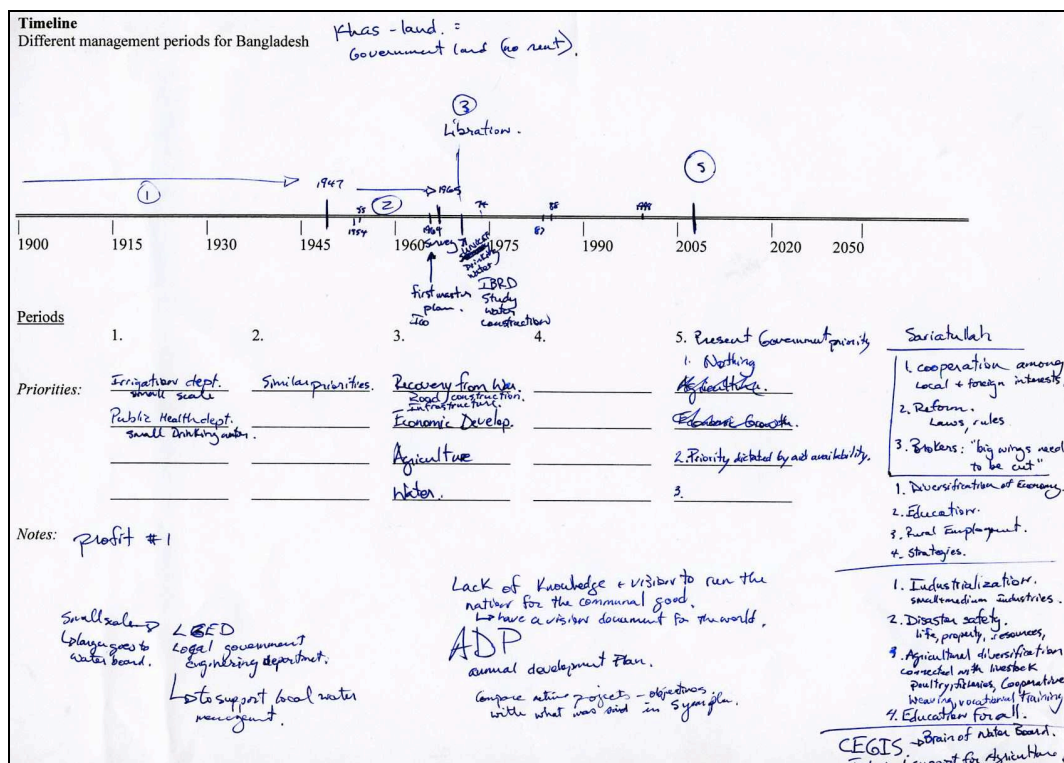 Timeline
Different management periods for Bangladesh
Khas-land. =
Government land (no rent).
3
Libration.
1
1947
2
1965
5
55
74
88
1998
1954
1964
87
1900
1915
1930
1945
1960
1975
1990
2005
2020
2050
survey
UNICEF
Drinking
Water
first master
plan.
IBRD
Study
water
construction
Periods
1.
2.
3.
4.
5. Present Government priority
1. Nothing
Priorities:
Irrigation dept.
small scale
Public Health dept.
small Drinking water.
Similar priorities.
Recovery from War.
Road construction.
Infrastructure.
Economic Develop.
Agriculture
Water.
Agriculture.
Economic Growth.
2. Priority dictated by aid availability.
3.
Sariatullah
1. cooperation among
Local + foreign interests,
2. Reform.
Laws, rules
3. Brokers: "big wings need
to be cut"
1. Diversification of Economy.
2. Education.
3. Rural Employment.
4. Strategies.
1. Industrialization.
small+medium industries.
2. Disaster safety.
life, property, resources,
3. Agricultural diversification
connected with livestock
Poultry, fisheries, Cooperative
Weaving, vocational training
4. Education for all.
CEGIS → Brain of Water Board.
support for Agriculture.
Notes:
profit #1
Small scale
↳ larger goes to
water board.
LGED
Local government
engineering department.
↳ to support local water
management.
Lack of Knowledge + vision to run the
nation for the communal good.
↳ have a vision document for the world.
ADP
annual development Plan.
Compare active projects - objectives
with what was said in 5 year plan.